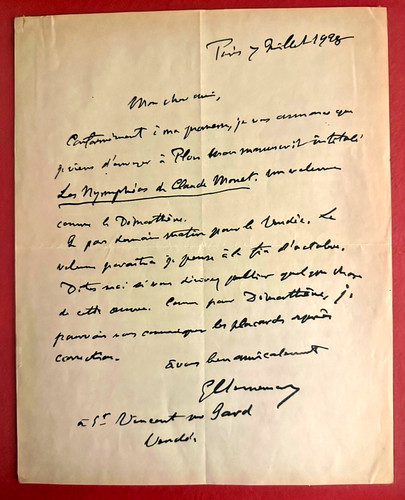 Paris 7 Juillet 1928
Mon cher ami,
Conformément à ma promesse, je vous annonce que
je viens d'envoyer à Plon le manuscrit intitulé
Les Nymphéas de Claude Monet. un volume
comme le Démosthène.
Je pars demain matin pour la Vendée. Le
volume paraîtra je pense à la fin d'octobre.
Dites moi si vous désirez publier quelque chose
de cette œuvre. Comme pour Démosthène, je
pourrais vous communiquer les placards après
correction.
à vous bien amicalement
GClemenceau
à St Vincent sur Jard
Vendée